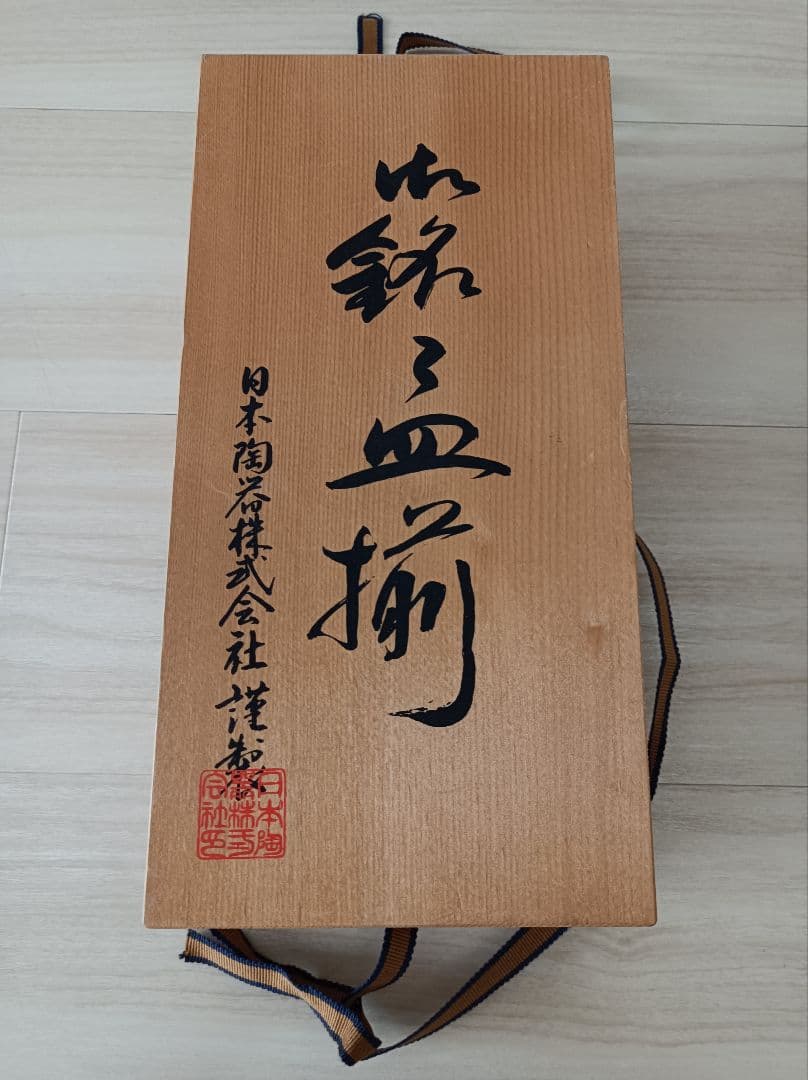 御銘々皿揃
日本陶器株式会社謹製
日本陶
器株式
会社印